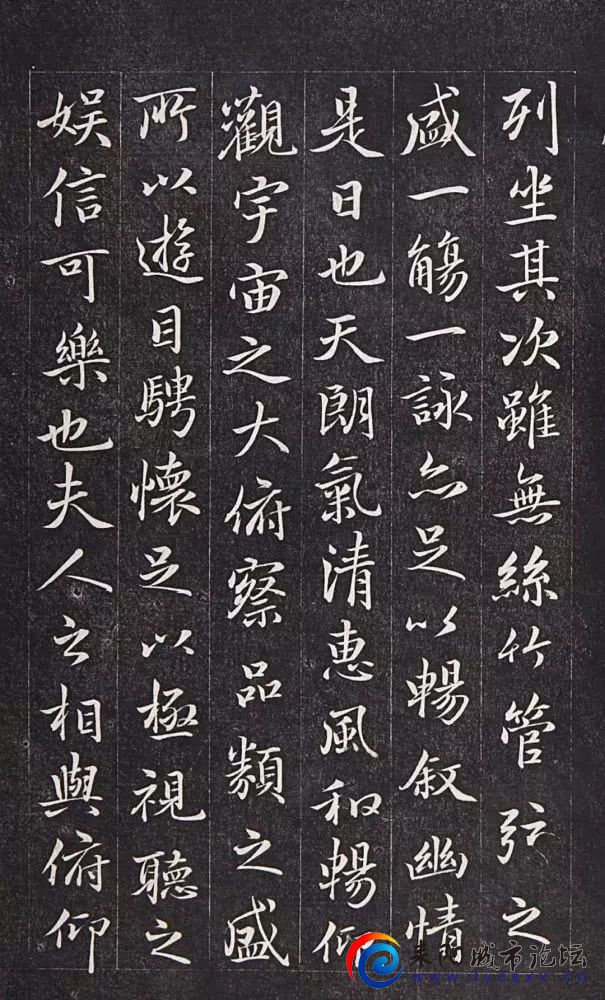 列坐其次雖無絲竹管弦之
盛一觴一詠亦足以暢敘幽情
是日也天朗氣清惠風和暢仰
觀宇宙之大俯察品類之盛
所以遊目騁懷足以極視聽之
娛信可樂也夫人之相與俯仰
耒阳城市论坛
www.lysxx.cn